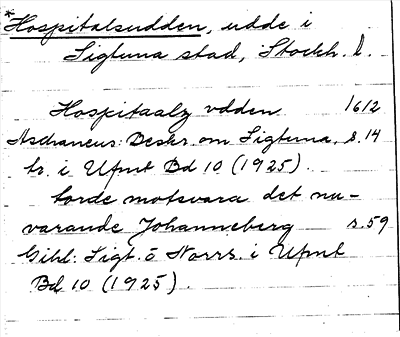 *Hospitalsudden, udde i
Sigtuna stad, Stockh. l.
Hospitaalz vdden 1612
Aschaneus: Beskr. om Sigtuna, s. 14
tr. i Ufmt Bd 10 (1925).
torde motsvara det nu-
varande Johanneberg s. 59
Gihl: Sigt. o Norrs. i Ufmt
Bd 10 (1925).